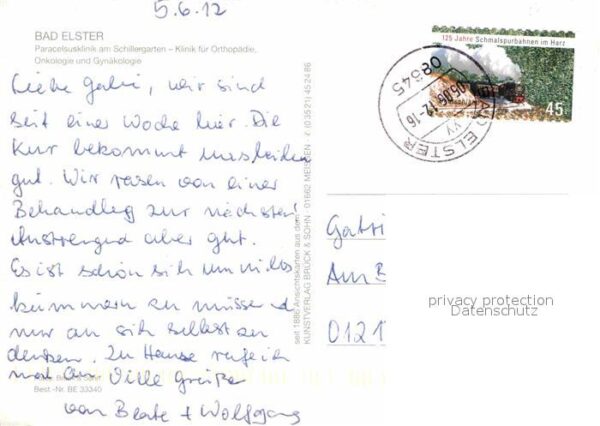 5.6.12
BAD ELSTER
Paracelsusklinik am Schillergarten – Klinik für Orthopädie,
Onkologie und Gynäkologie
Liebe Gabi, wir sind
seit einer Woche hier. Die
Kur bekommt uns beiden
gut. Wir rasen von einer
Behandlung zur nächsten
Anstrengend aber gut.
Es ist schön sich um nichts
kümmern zu müssen und
nur an sich selbst zu
denken. Zu Hause rufe ich
mal an. Viele Grüße
von Beate + Wolfgang
Best.-Nr. BE 33340
seit 1886 Ansichtskarten aus dem
KUNSTVERLAG BRÜCK & SOHN · 01662 MEISSEN · ✆ (03521) 45 24 86
125 Jahre Schmalspurbahnen im Harz
45
08645
05.06.12-16
BAD ELSTER
Gabri
Am B
0121
privacy protection
Datenschutz